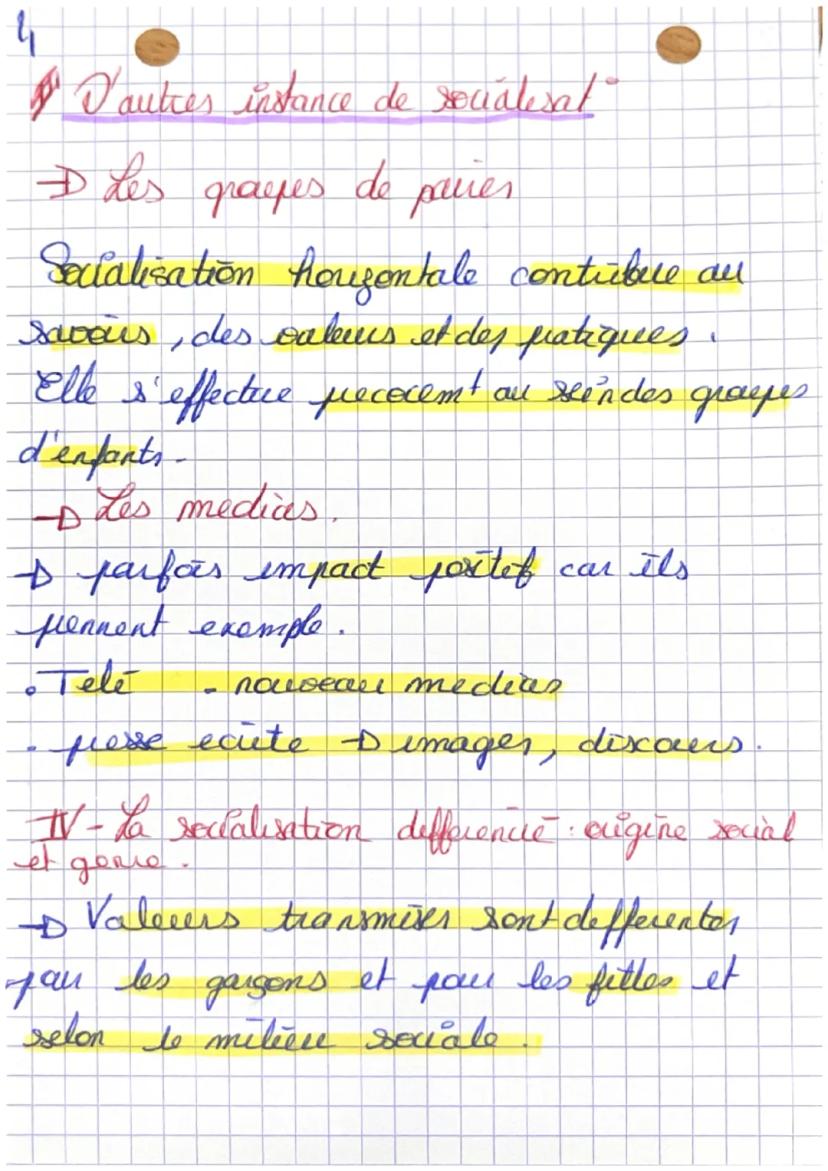 4
D'autres instance de socialisat°
→ Les groupes de paires
Socialisation horizontale contribue au
savoirs, des valeurs et des pratiques.
Elle s'effectue precocemt au sein des groupes
d'enfants.
→ Les medias.
→ parfois impact positif car ils
prennent exemple.
• Telé - nouveau medias
- presse ecrite → images, discours.
IV - La socialisation differencié : origine social
et genre.
→ Valeurs transmises sont differentes
par les garçons et pour les filles et
selon le milieu sociale.